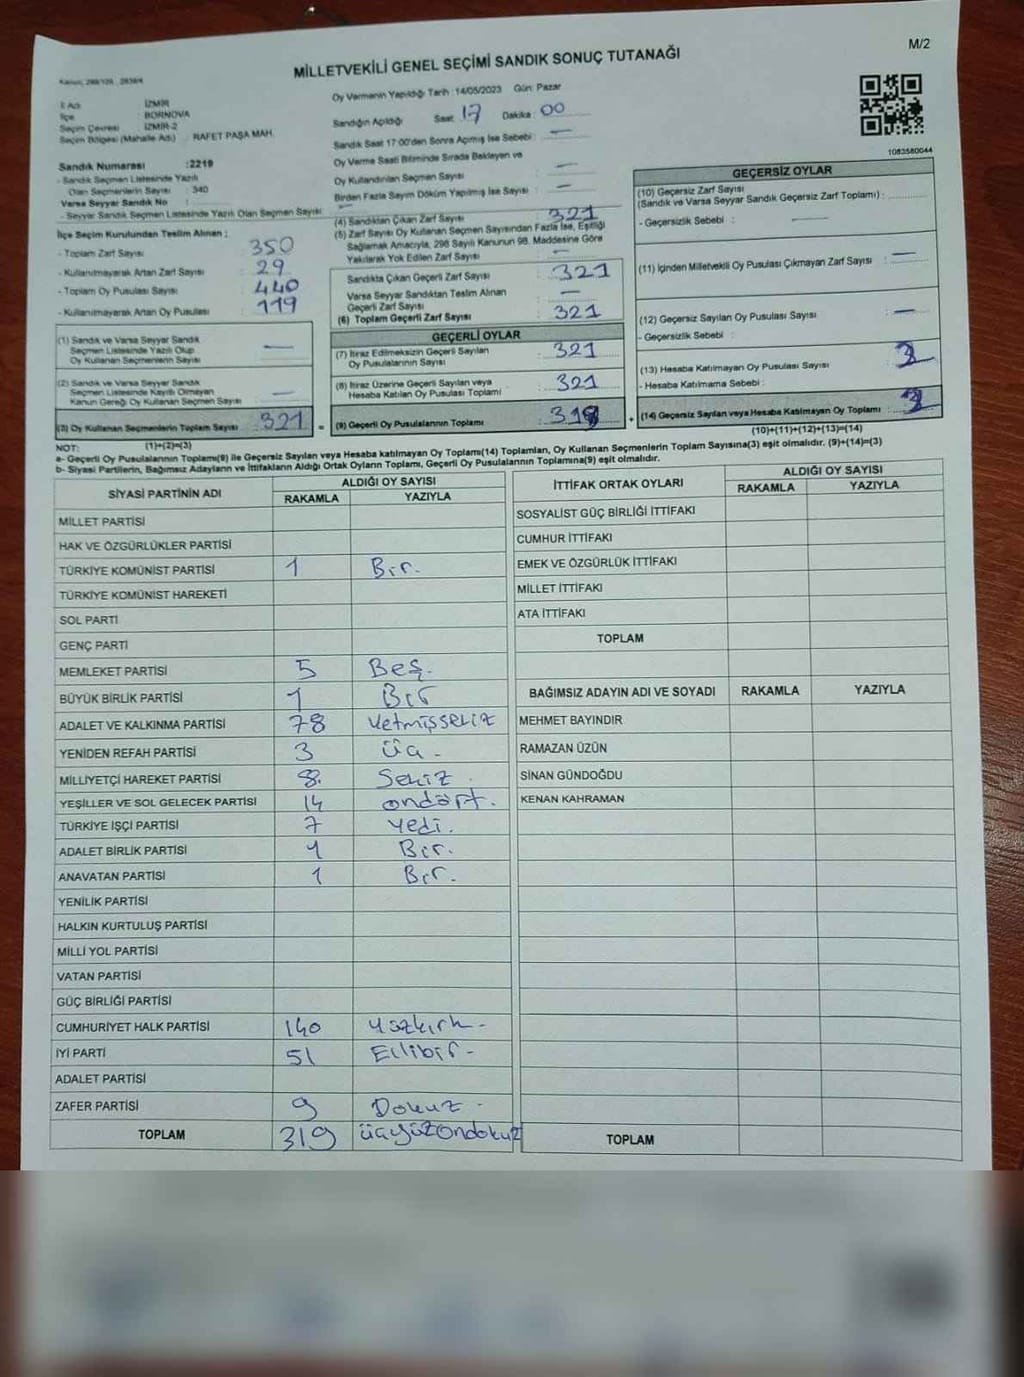 M/2
MİLLETVEKİLİ GENEL SEÇİMİ SANDIK SONUÇ TUTANAĞI
İl Adı : İZMİR
İlçe : BORNOVA
Seçim Çevresi : İZMİR-2
Seçim Bölgesi (Mahalle Adı) : RAFET PAŞA MAH.
Sandık Numarası : 2219
- Sandık Seçmen Listesinde Yazılı
Olan Seçmenlerin Sayısı : 340
Varsa Seyyar Sandık No :
- Seyyar Sandık Seçmen Listesinde Yazılı Olan Seçmen Sayısı :
İlçe Seçim Kurulundan Teslim Alınan :
- Toplam Zarf Sayısı : 350
- Kullanılmayarak Artan Zarf Sayısı : 29
- Toplam Oy Pusulası Sayısı : 440
- Kullanılmayarak Artan Oy Pusulası : 119
(1) Sandık ve Varsa Seyyar Sandık
Seçmen Listesinde Yazılı Olup
Oy Kullanan Seçmenlerin Sayısı : —
(2) Sandık ve Varsa Seyyar Sandık
Seçmen Listesinde Kayıtlı Olmayan
Kanun Gereği Oy Kullanan Seçmen Sayısı : —
(3) Oy Kullanan Seçmenlerin Toplam Sayısı : 321
(1)+(2)=(3)
Oy Vermenin Yapıldığı Tarih : 14/05/2023 Gün: Pazar
Sandığın Açıldığı Saat: 17 Dakika : 00
Sandık Saat 17:00'den Sonra Açılmış İse Sebebi : —
Oy Verme Saati Bitiminde Sırada Bekleyen ve
Oy Kullandırılan Seçmen Sayısı : —
Birden Fazla Sayım Döküm Yapılmış İse Sayısı : —
(4) Sandıktan Çıkan Zarf Sayısı : 321
(5) Zarf Sayısı Oy Kullanan Seçmen Sayısından Fazla İse, Eşitliği
Sağlamak Amacıyla, 298 Sayılı Kanunun 98. Maddesine Göre
Yakılarak Yok Edilen Zarf Sayısı : —
Sandıkta Çıkan Geçerli Zarf Sayısı : 321
Varsa Seyyar Sandıktan Teslim Alınan
Geçerli Zarf Sayısı : —
(6) Toplam Geçerli Zarf Sayısı : 321
GEÇERLİ OYLAR
(7) İtiraz Edilmeksizin Geçerli Sayılan
Oy Pusulalarının Sayısı : 321
(8) İtiraz Üzerine Geçerli Sayılan veya
Hesaba Katılan Oy Pusulası Toplamı : 321
(9) Geçerli Oy Pusulalarının Toplamı :
1083580044
GEÇERSİZ OYLAR
(10) Geçersiz Zarf Sayısı
(Sandık ve Varsa Seyyar Sandık Geçersiz Zarf Toplamı) :
- Geçersizlik Sebebi : —
(11) İçinden Milletvekili Oy Pusulası Çıkmayan Zarf Sayısı : —
(12) Geçersiz Sayılan Oy Pusulası Sayısı : —
- Geçersizlik Sebebi :
(13) Hesaba Katılmayan Oy Pusulası Sayısı :
- Hesaba Katılmama Sebebi :
(14) Geçersiz Sayılan veya Hesaba Katılmayan Oy Toplamı :
(10)+(11)+(12)+(13)=(14)
NOT:
a- Geçerli Oy Pusulalarının Toplamı(9) ile Geçersiz Sayılan veya Hesaba katılmayan Oy Toplamı(14) Toplamları, Oy Kullanan Seçmenlerin Toplam Sayısına(3) eşit olmalıdır. (9)+(14)=(3)
b- Siyasi Partilerin, Bağımsız Adayların ve İttifakların Aldığı Ortak Oyların Toplamı, Geçerli Oy Pusulalarının Toplamına(9) eşit olmalıdır.
SİYASİ PARTİNİN ADI ALDIĞI OY SAYISI
RAKAMLA YAZIYLA
MİLLET PARTİSİ
HAK VE ÖZGÜRLÜKLER PARTİSİ
TÜRKİYE KOMÜNİST PARTİSİ 1 Bir.
TÜRKİYE KOMÜNİST HAREKETİ
SOL PARTİ
GENÇ PARTİ
MEMLEKET PARTİSİ 5 Beş.
BÜYÜK BİRLİK PARTİSİ 1 Bir
ADALET VE KALKINMA PARTİSİ 78 Yetmişsekiz
YENİDEN REFAH PARTİSİ 3 Üç -
MİLLİYETÇİ HAREKET PARTİSİ 8. Sekiz.
YEŞİLLER VE SOL GELECEK PARTİSİ 14 ondört.
TÜRKİYE İŞÇİ PARTİSİ 7 yedi.
ADALET BİRLİK PARTİSİ 1 Bir.
ANAVATAN PARTİSİ 1 Bir.
YENİLİK PARTİSİ
HALKIN KURTULUŞ PARTİSİ
MİLLİ YOL PARTİSİ
VATAN PARTİSİ
GÜÇ BİRLİĞİ PARTİSİ
CUMHURİYET HALK PARTİSİ 140 Yüzkırk -
İYİ PARTİ 51 Ellibir -
ADALET PARTİSİ
ZAFER PARTİSİ 9 Dokuz -
TOPLAM 319 üçyüzondokuz
İTTİFAK ORTAK OYLARI ALDIĞI OY SAYISI
RAKAMLA YAZIYLA
SOSYALİST GÜÇ BİRLİĞİ İTTİFAKI
CUMHUR İTTİFAKI
EMEK VE ÖZGÜRLÜK İTTİFAKI
MİLLET İTTİFAKI
ATA İTTİFAKI
TOPLAM
BAĞIMSIZ ADAYIN ADI VE SOYADI RAKAMLA YAZIYLA
MEHMET BAYINDIR
RAMAZAN ÜZÜN
SİNAN GÜNDOĞDU
KENAN KAHRAMAN
TOPLAM